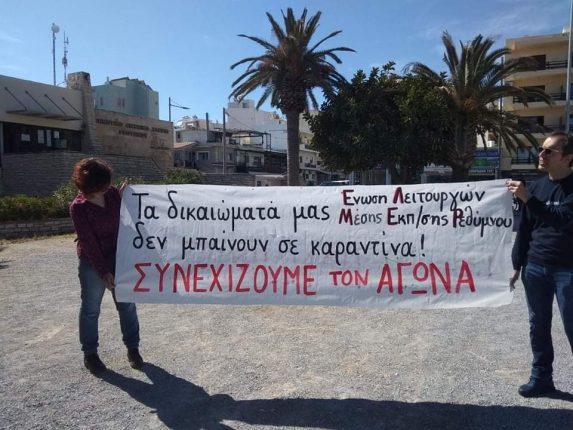 Τα δικαιώματά μας
δεν μπαίνουν σε καραντίνα!
Ένωση Λειτουργών
Μέσης Εκπ/σης Ρεθύμνου
ΣΥΝΕΧΙΖΟΥΜΕ ΤΟΝ ΑΓΩΝΑ